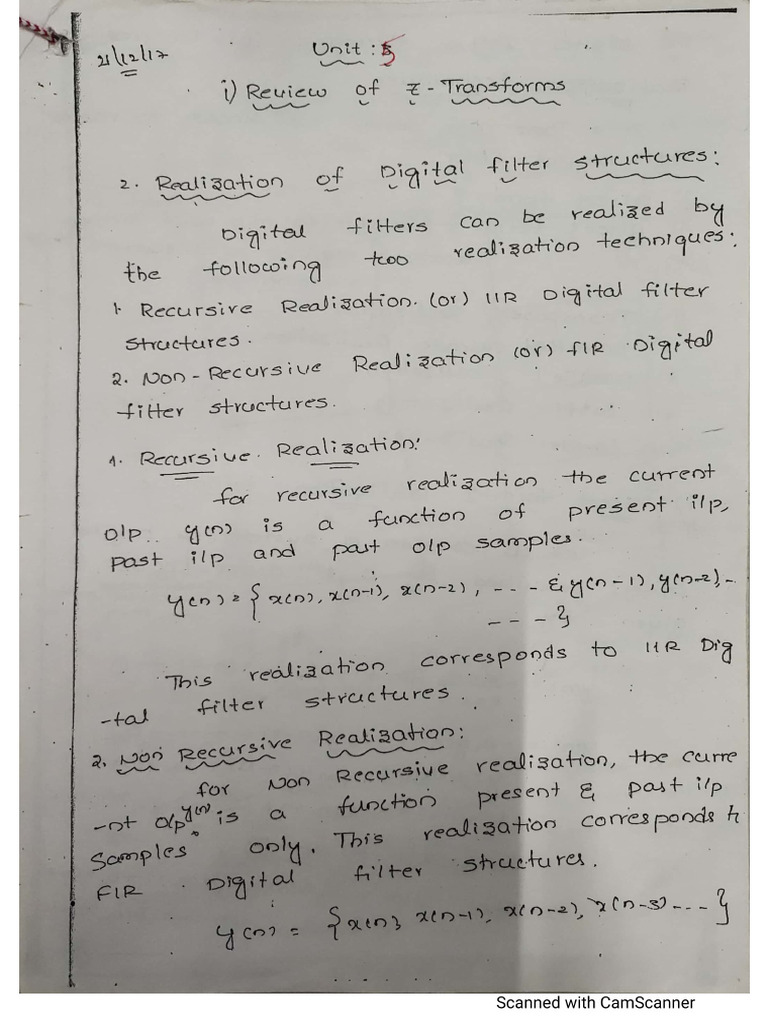 21/12/17
Unit : 5
i) Review of z - Transforms
2. Realization of Digital filter structures:
Digital filters can be realized by
the following two realization techniques:
1. Recursive Realization. (or) IIR Digital filter
structures.
2. Non-Recursive Realization (or) FIR Digital
filter structures.
1. Recursive Realization:
for recursive realization the current
o/p y(n) is a function of present i/p,
past i/p and past o/p samples.
y(n) = { x(n), x(n-1), x(n-2), ---- & y(n-1), y(n-2),-
---- }
This realization corresponds to IIR Dig
-tal filter structures.
2. Non Recursive Realization:
for Non Recursive realization, the curre
-nt o/p y(n) is a function present & past i/p
samples only. This realization corresponds
FIR Digital filter structures.
y(n) = { x(n), x(n-1), x(n-2), x(n-3) ---- }
Scanned with CamScanner